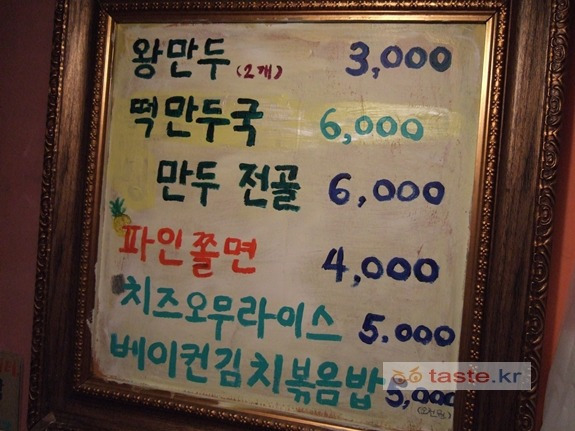 왕만두 (2개) 3,000
떡만두국 6,000
만두 전골 6,000
파인쫄면 4,000
치즈오무라이스 5.000
베이컨김치볶음밥 5,000
taste.kr